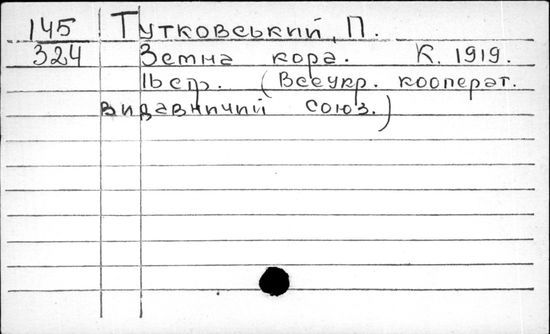 145 Тутковський, П.
324 Земна кора. К. 1919.
16 стр. (Всеукр. кооперат.
видавничий союз.)